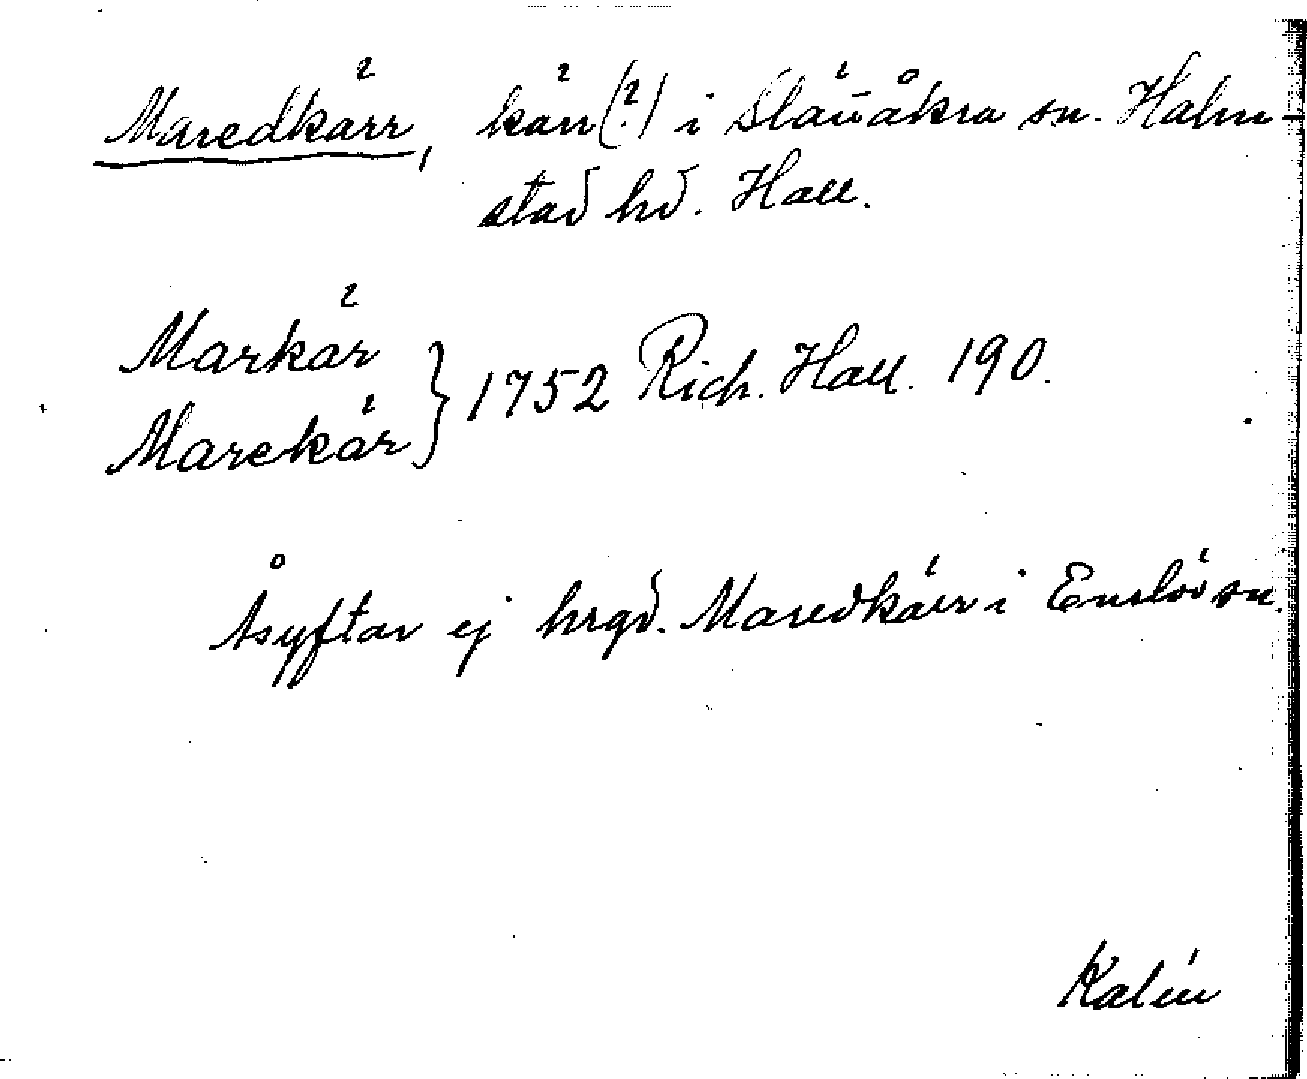 Maredkärr, kärr(?) i Slättåkra sn. Halm-
stad hd. Hall.
Markär
Marekär } 1752 Rich. Hall. 190.
Åsyftar ej hrgd. Maredkärr i Enslöv sn.
Kalén